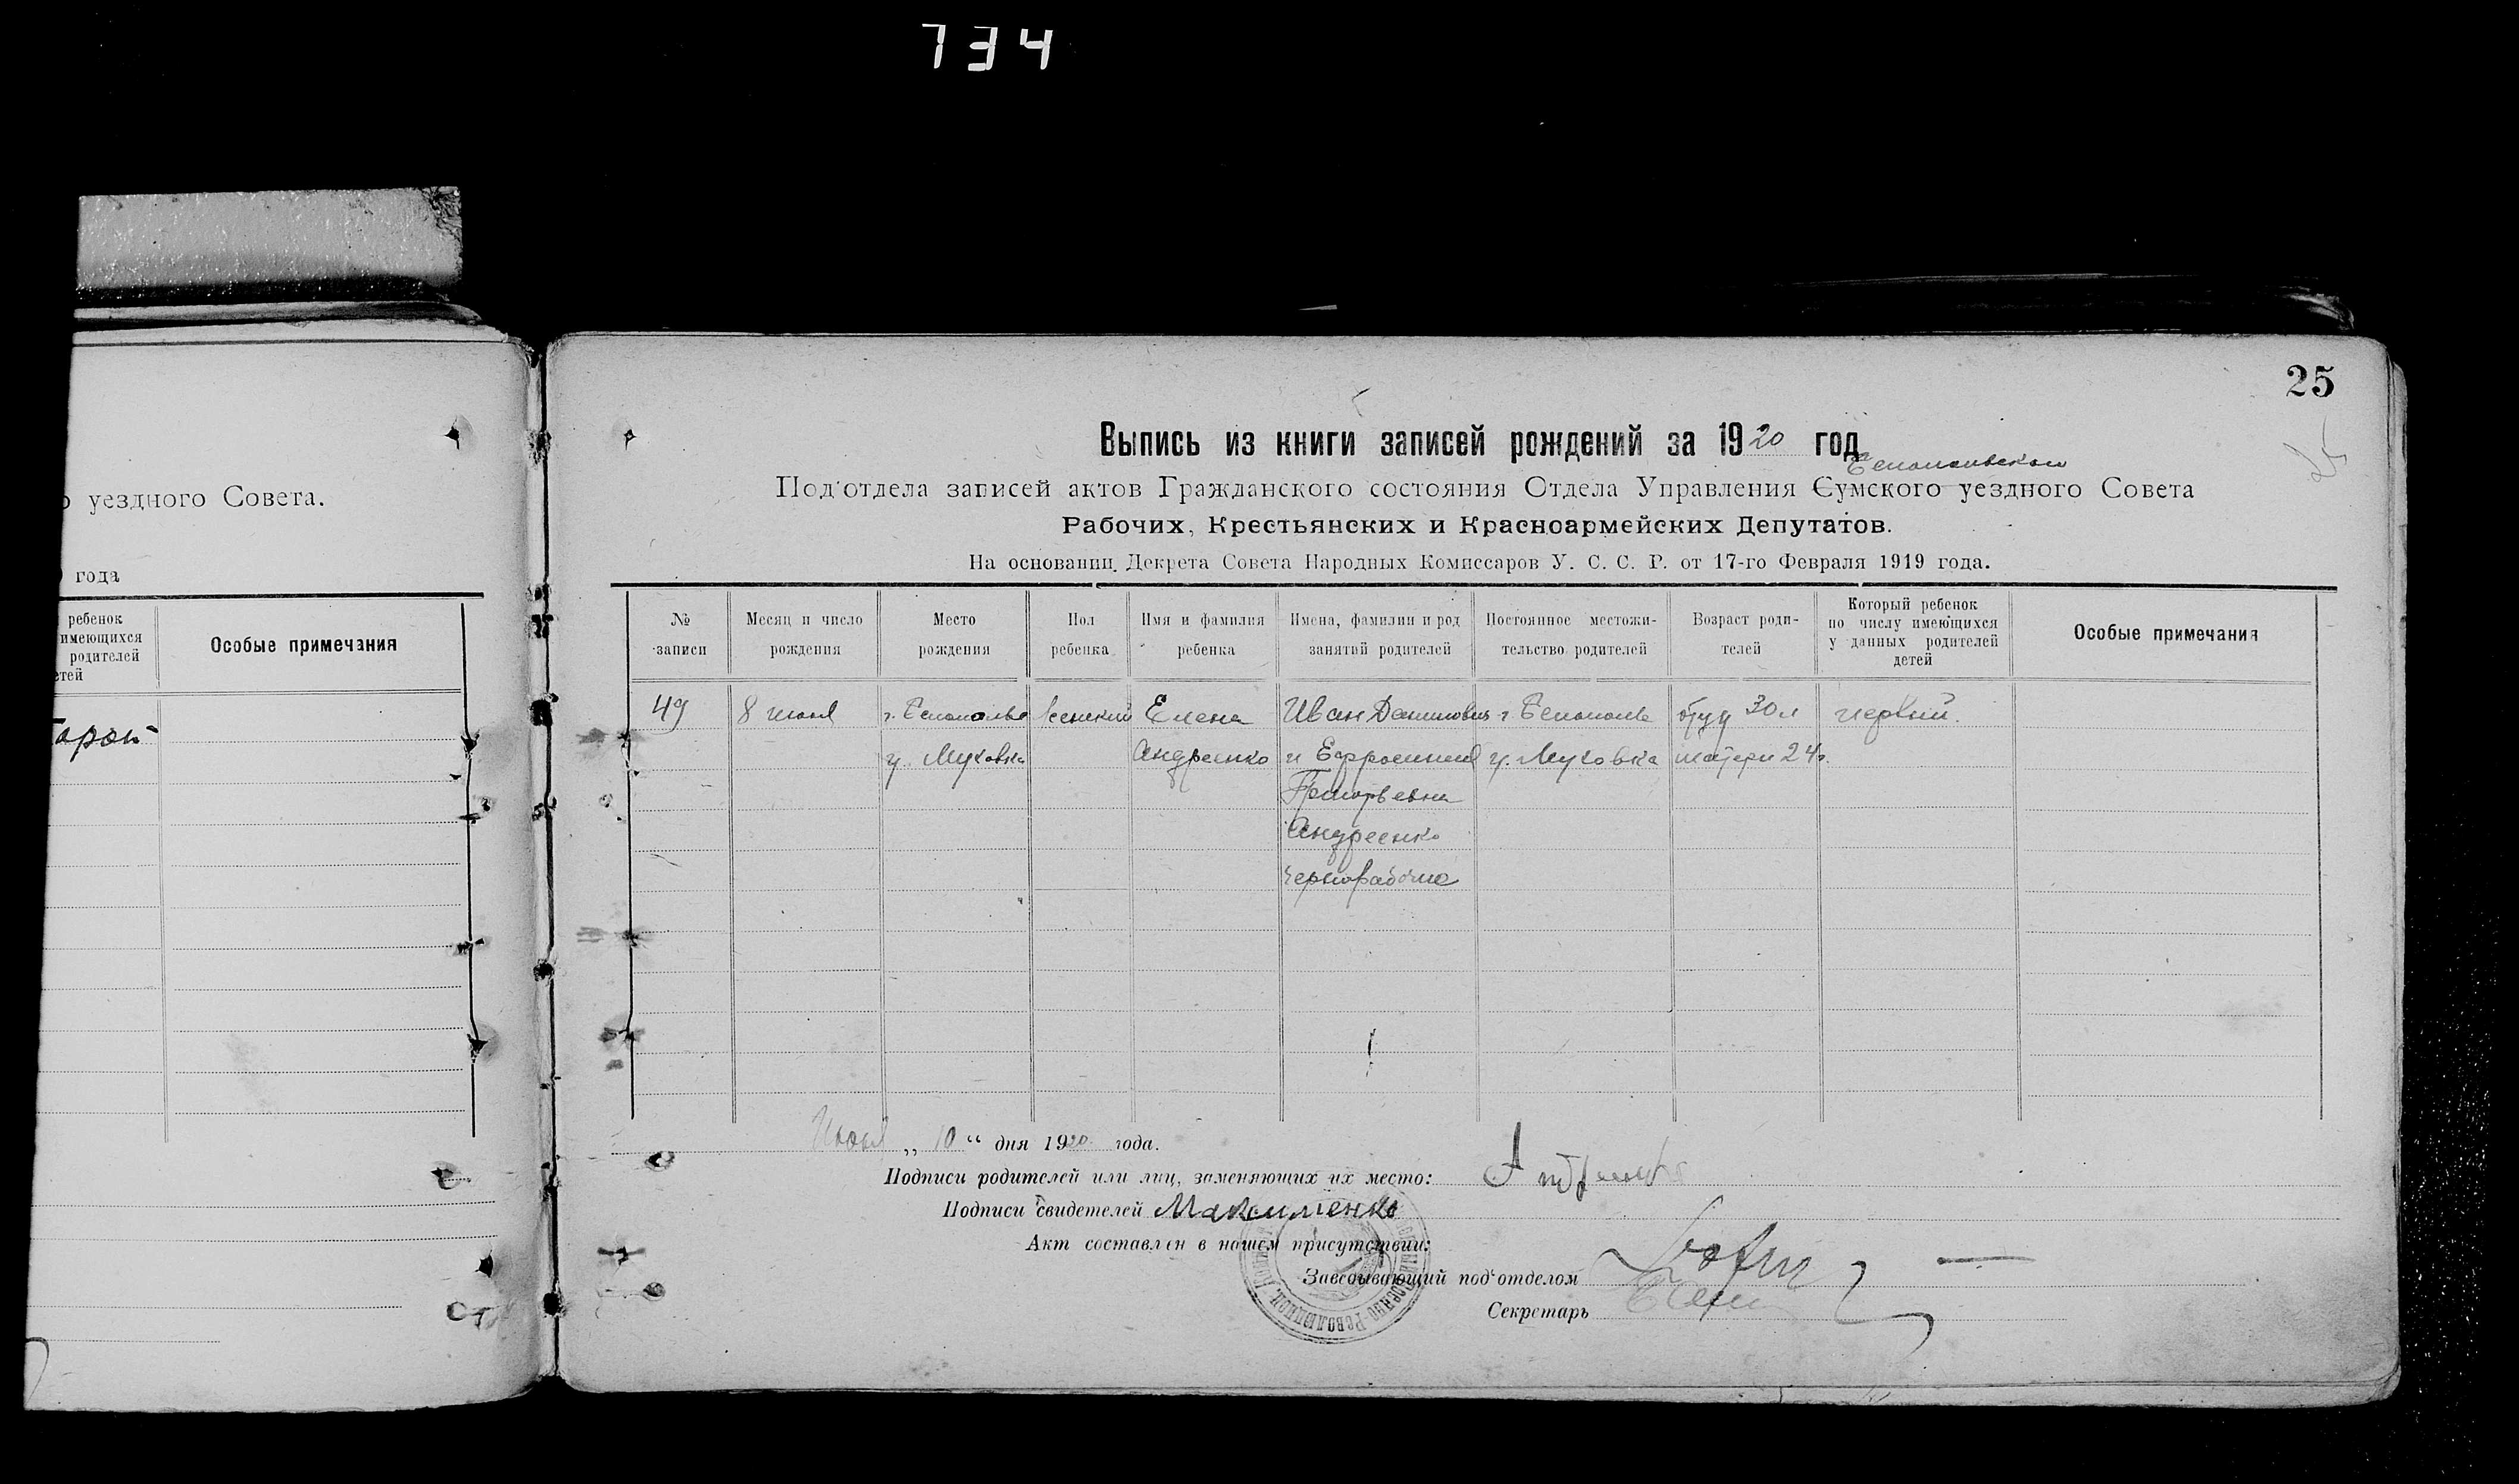 734
25
Выпись из книги записей рождений за 1920 год
Белопольского
Под'отдела записей актов Гражданского состояния Отдела Управления Сумского уездного Совета
Рабочих, Крестьянских и Красноармейских Депутатов.
На основании Декрета Совета Народных Комиссаров У. С. С. Р. от 17-го Февраля 1919 года.
уездного Совета.
года
ребенок
имеющихся
родителей
етей
Особые примечания
торой
№ записи
Месяц и число рождения
Место рождения
Пол ребенка
Имя и фамилия ребенка
Имена, фамилии и род занятий родителей
Постоянное местожительство родителей
Возраст родителей
Который ребенок по числу имеющихся у данных родителей детей
Особые примечания
49
8 июля
г. Белополье
у. Муховка
женский
Елена
Андреенко
Иван Данилович
и Ефросиния
Андреенко
чернорабочие
г. Белополье
у. Муховка
отцу 30 л
матери 24
первый.
Июля „ 10 “ дня 1920 года.
Подписи родителей или лиц, заменяющих их место:
Подписи свидетелей Максименко
Акт составлен в нашем присутствии:
Заведывающий под'отделом
Секретарь